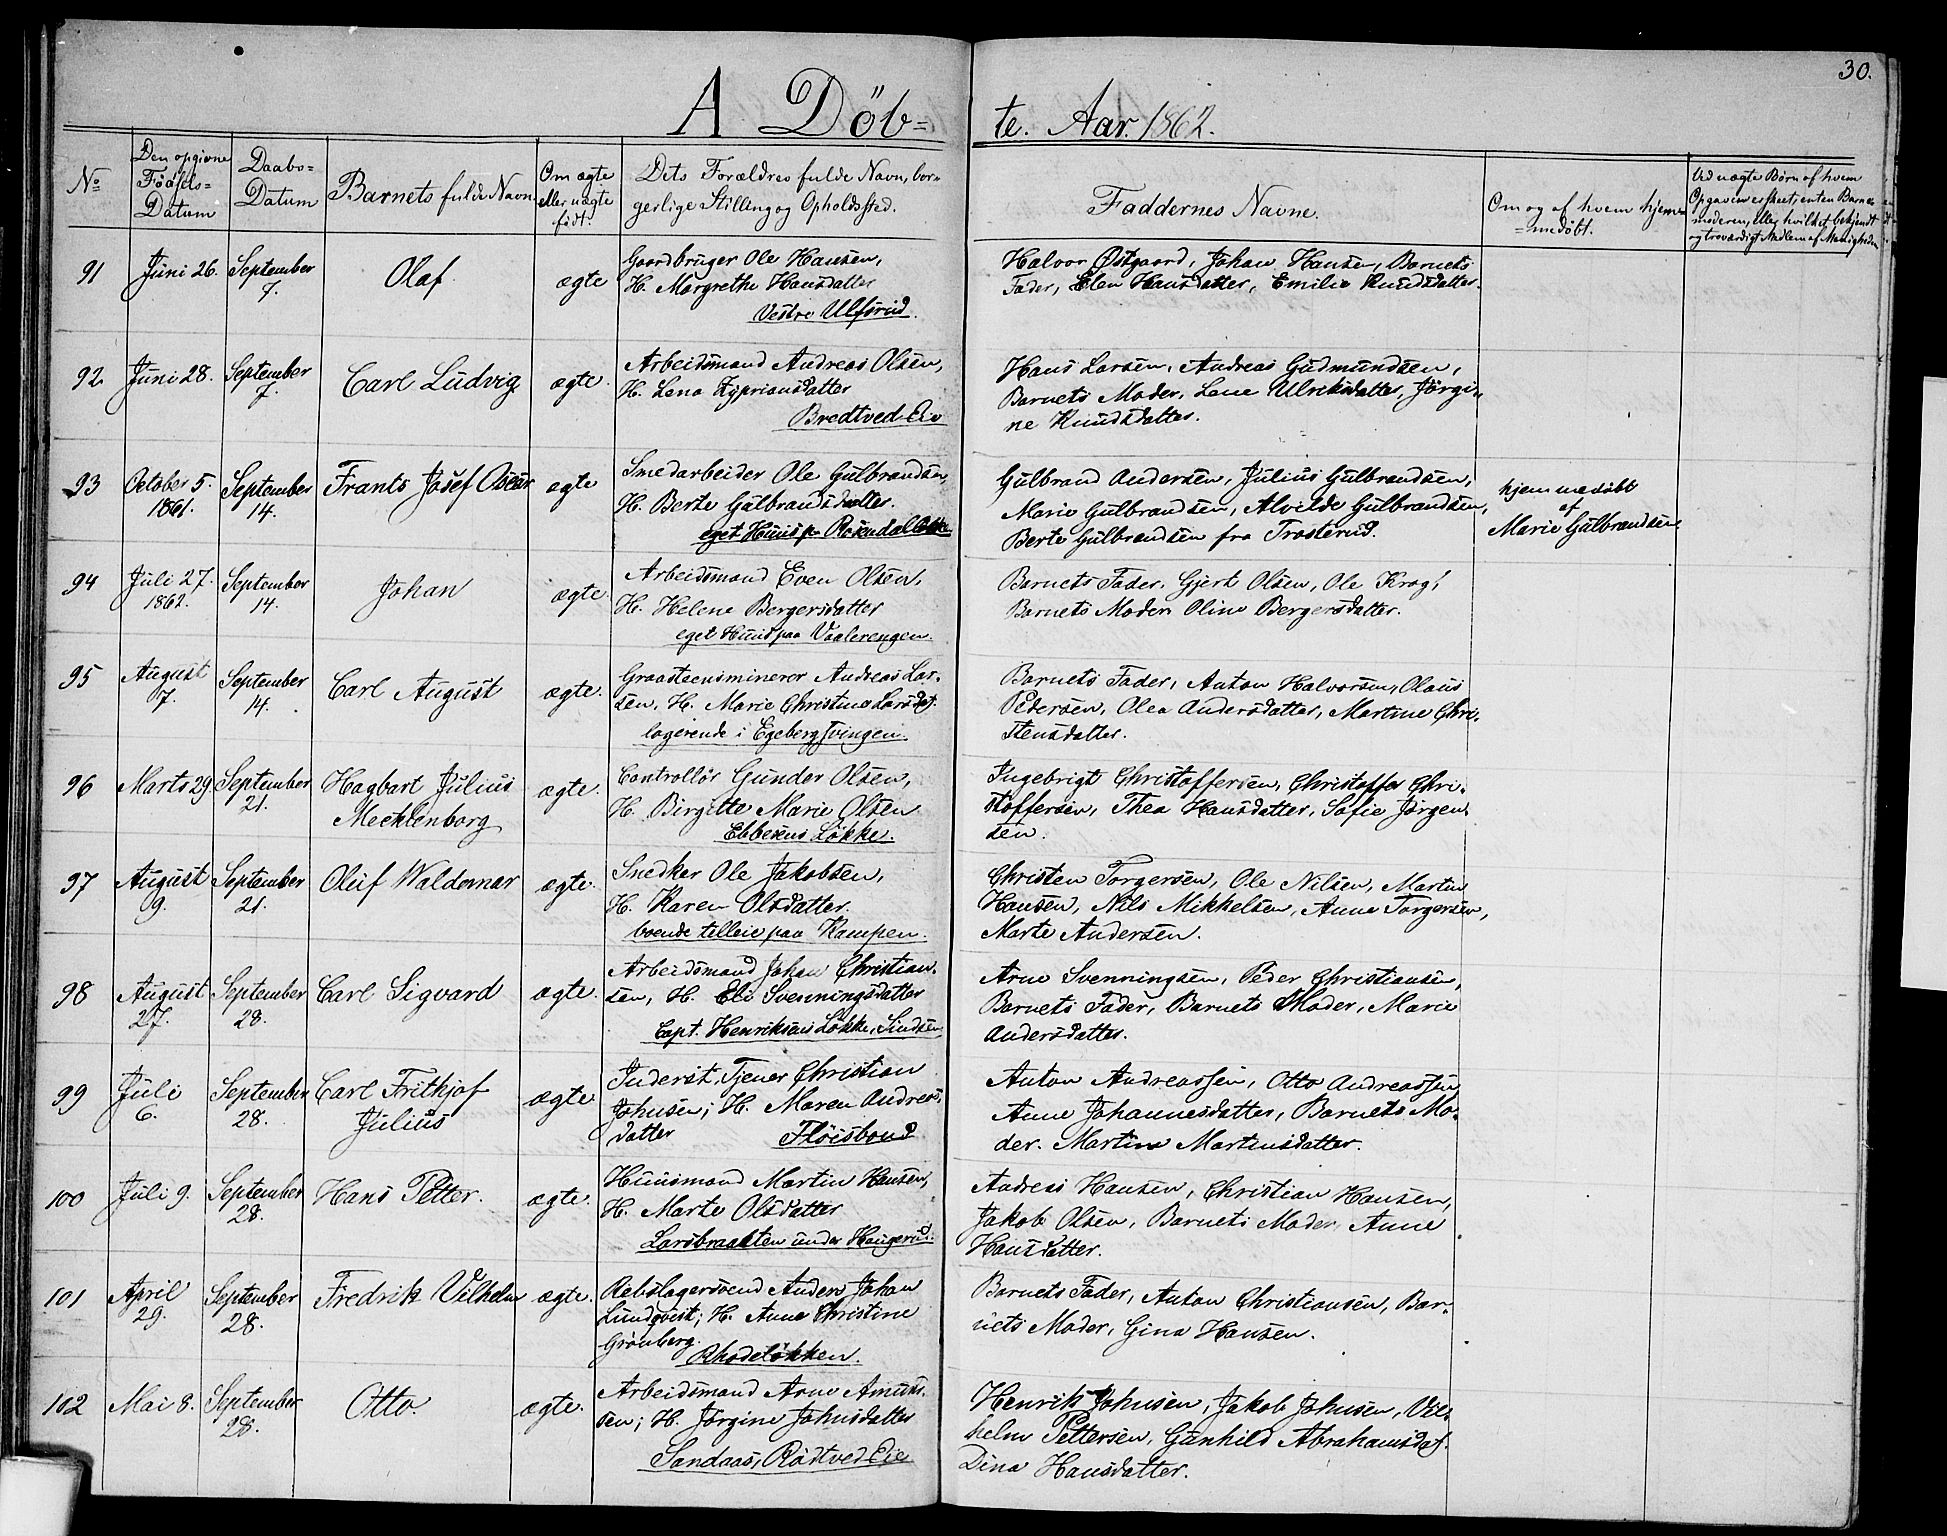 30.
A Döb= te. Aar. 1862.
No
Den opgivne Födsels= Datum
Daabs= Datum
Barnets fulde Navn
Om ægte eller uægte födt.
Dets Forældres fulde Navn, bor= gerlige Stilling og Opholdssted.
Faddernes Navne.
Om og af hvem hjem= =medöbt.
Ved uægte Börn af hvem Opgaven er skeet, enten Barnemoderen, eller hvilket bekjendt og troværdigt Medlem af Menigheden
91 Juni 26. September 7. Olaf ægte
Gaardbruger Ole Hansen,
H. Margrethe Hansdatter
Vestre Ulfsrud.
Halvor Østgaard, Johan Hansen, Barnets
Fader, Elen Hansdatter, Emilie Knudsdatter.
92 Juni 28. September 7. Carl Ludvig ægte.
Arbeidsmand Andreas Olsen,
H. Lena Zypriansdatter
Bredtved Eie
Hans Larsen, Andreas Gudmundsen,
Barnets Moder, Lene Ulriksdatter, Jörgi=
ne Knudsdatter.
93 October 5. 1861. September 14. Frants Josef Oscar ægte
Smedarbeider Ole Gulbrandsen,
H. Berte Gulbrandsdatter.
eget Huus p. Rosendal Løkke
Gulbrand Andersen, Julius Gulbrandsen,
Marie Gulbrandsen, Alvilde Gulbrandsen,
Berte Gulbrandsen fra Trosterud.
hjemmedöbt
af
Marie Gulbrandsen
94 Juli 27. 1862. September 14. Johan ægte.
Arbeidsmand Even Olsen,
H. Helene Bergersdatter
eget Huus paa Vaalerengen.
Barnets Fader, Gjert Olsen, Ole Krog,
Barnets Moder Oline Bergersdatter.
95 August 7. September 14. Carl August ægte.
Graasteensminerer Andreas Lar=
sen, H. Marie Christine Larsdat.
logerende i Egebergsvingen.
Barnets Fader, Anton Halvorsen, Olaus
Pedersen, Olea Andersdatter, Martine Chri=
stensdatter.
96 Marts 29 September 21. Hagbart Julius Mecklenborg ægte.
Controllör Gunder Olsen,
H. Birgitte Marie Olsen
Ebbesens Løkke.
Ingebrigt Christoffersen, Christoffer Chri=
stoffersen, Thea Hansdatter, Sofie Jörgen
sen.
97 August 9. September 21. Oluf Waldemar ægte.
Snedker Ole Jakobsen,
H. Karen Olsdatter.
boende tilleie paa Kampen.
Christen Torgersen, Ole Nilsen, Martin
Hansen, Nils Mikkelsen, Anne Torgersen,
Marte Andersen.
98 August 27. September 28. Carl Sigvard ægte.
Arbeidsmand Johan Christian=
sen, H. Eli Svenningsdatter
Capt. Henriksens Løkke, Sindsen
Arne Svenningsen, Peder Christiansen,
Barnets Fader, Barnets Moder, Marie
Andersdatter.
99 Juli 6. September 28. Carl Fritkjof Julius ægte.
Inderst, Tjener Christian
Johnsen; H. Maren Andreas=
datter Fløisbond
Anton Andreassen, Otto Andreassen
Anne Johannesdatter, Barnets Mo=
der. Martine Martinsdatter.
100 Juli 9. September 28. Hans Petter. ægte.
Huusmand Martin Hansen,
H. Marte Olsdatter
Larsbraaten under Haugerud.
Andreas Hansen, Christian Hansen,
Jakob Olsen, Barnets Moder, Anne
Hansdatter.
101 April 29. September 28. Fredrik Vilhelm ægte.
Rebslagersvend Anders Johan
Lundqvist; H. Anne Christine
Grönberg.
Rhodeløkken.
Barnets Fader, Anton Christiansen, Bar=
nets Moder, Gina Hansen.
102 Mai 8. September 28. Otto. ægte.
Arbeidsmand Arne Amund=
sen; H. Jörgine Johnsdatter
Sandaas, Rödtved Eie
Henrik Johnsen, Jakob Johnsen, Vil=
helm Pettersen, Gunhild Abrahamsdat.
Dina Hansdatter.